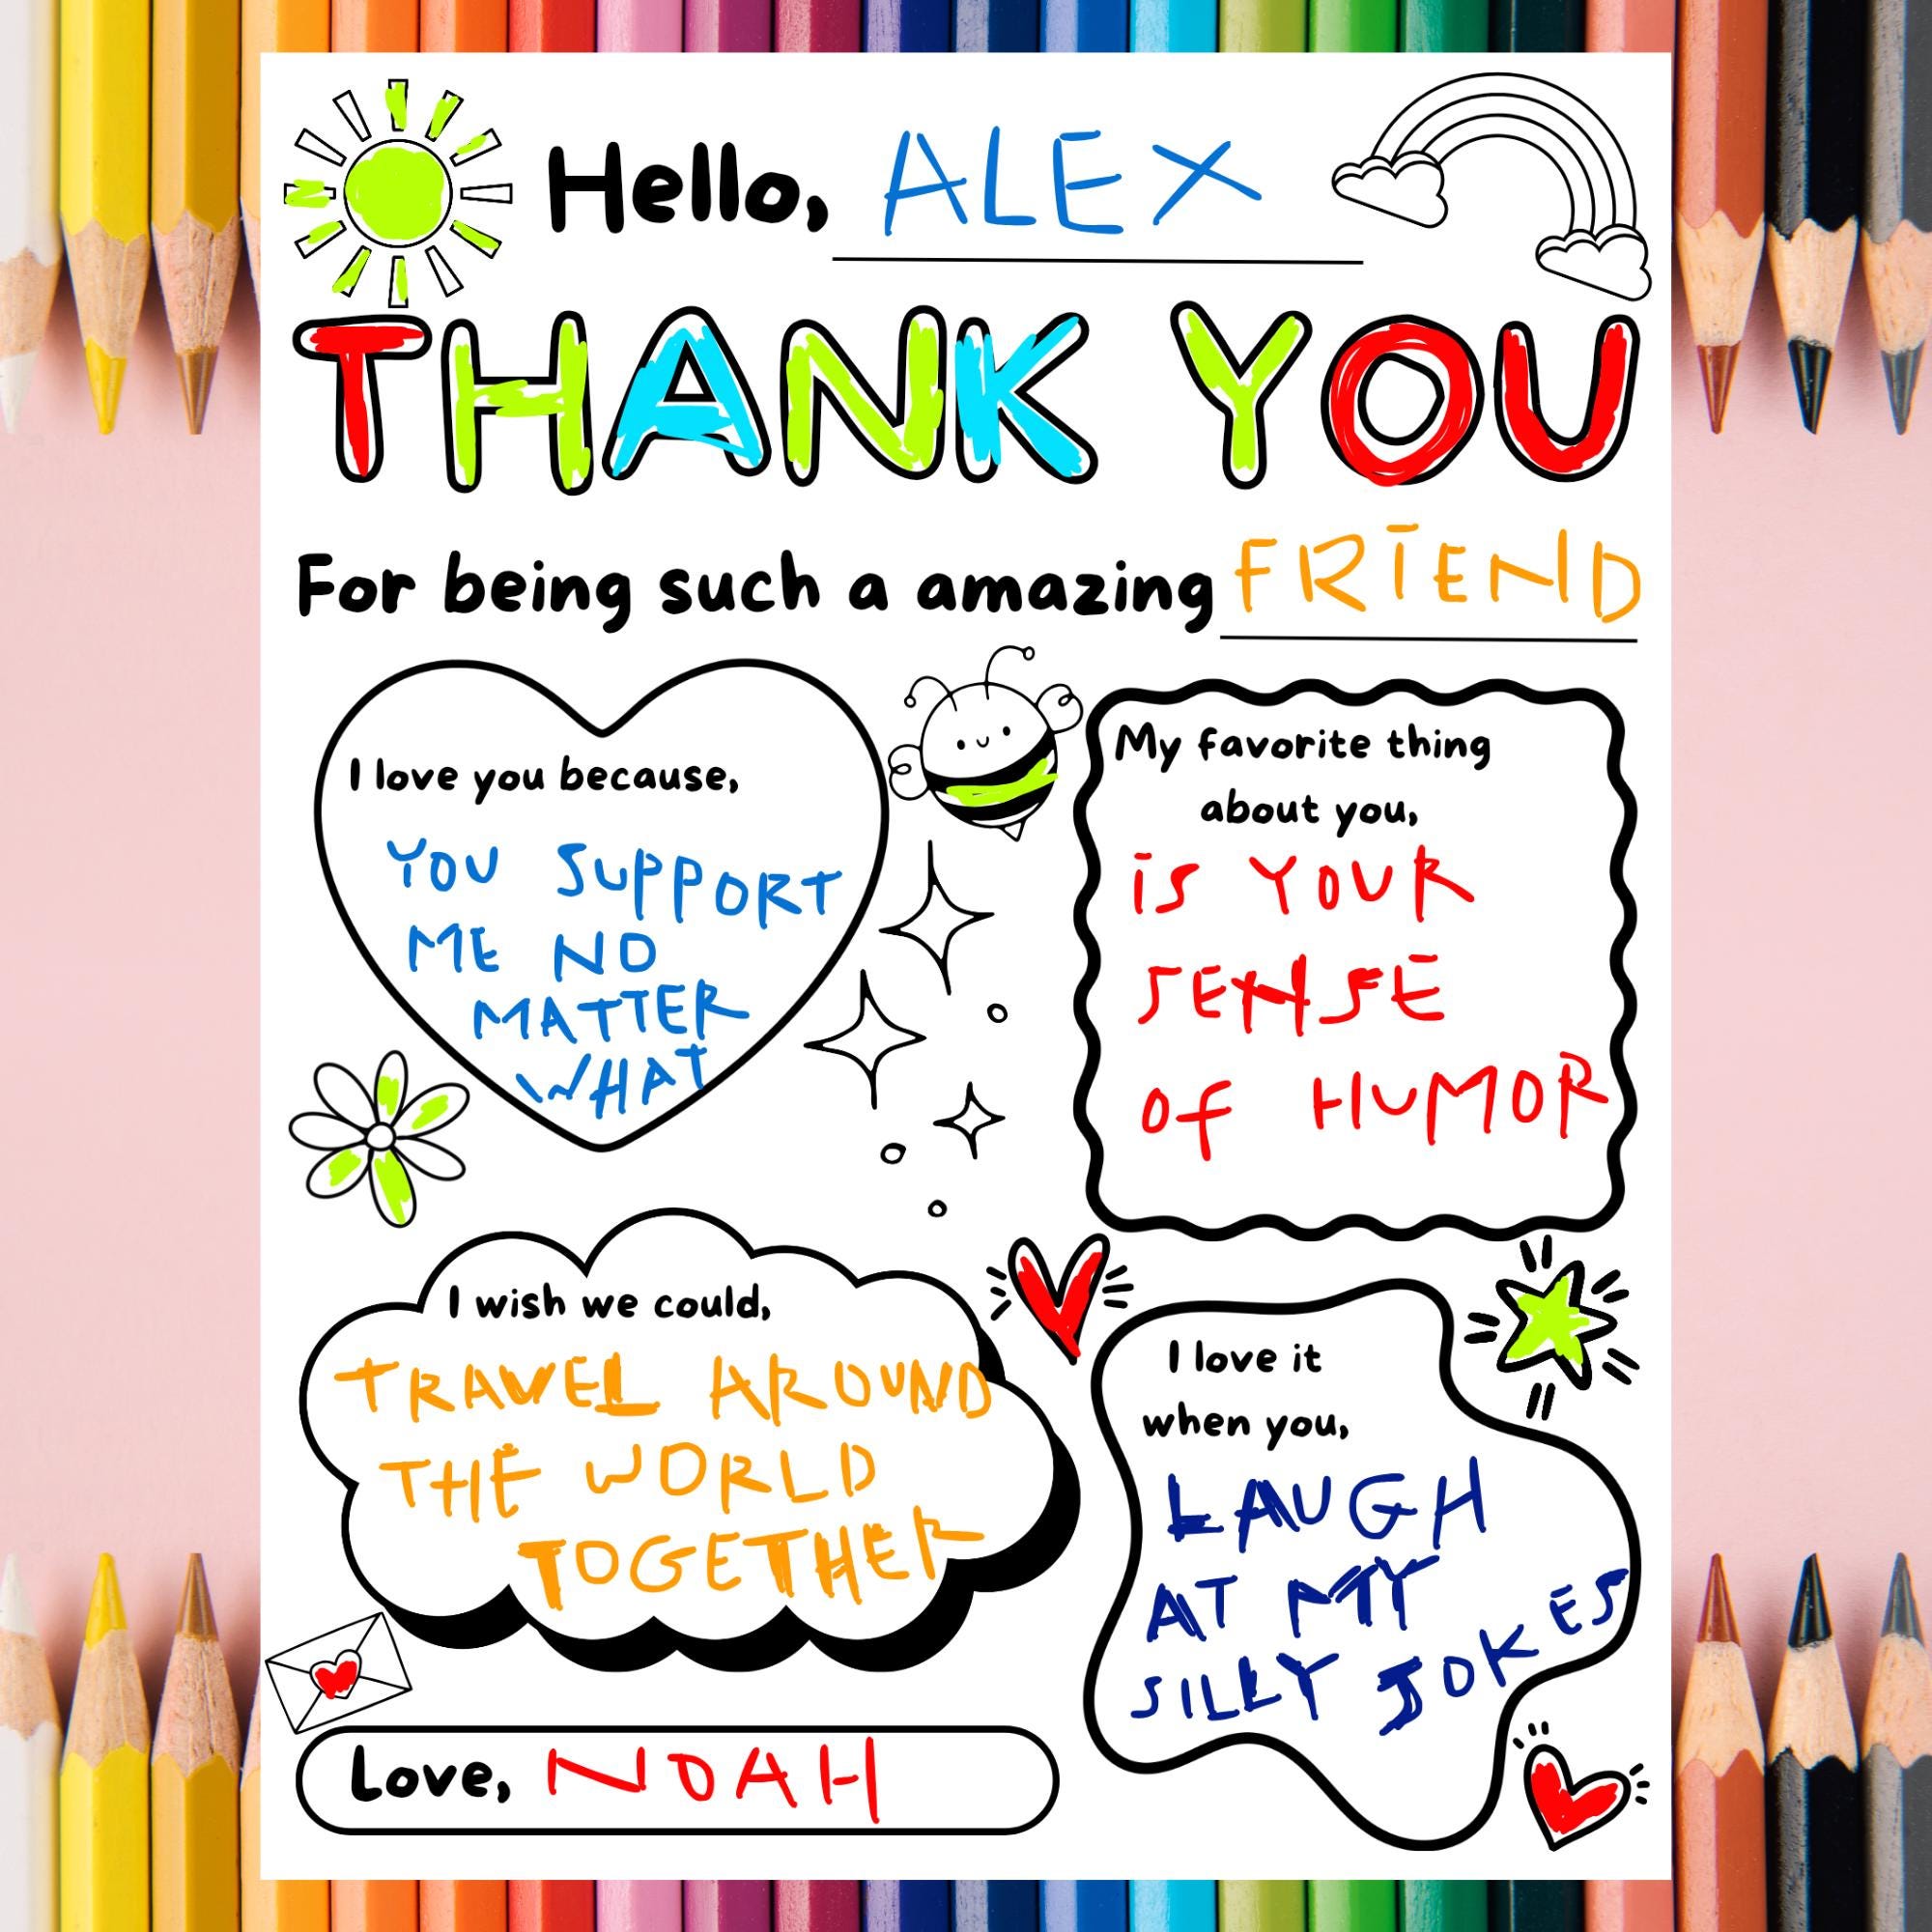 Hello, ALEX
THANK YOU
For being such a amazing FRIEND
I love you because,
YOU SUPPORT
ME NO
MATTER
WHAT
My favorite thing
about you,
iS YOUR
SENSE
Of HUMOR
I wish we could,
TRAVEL AROUND
THE WORLD
TOGETHER
I love it
when you,
LAUGH
AT MY
SILLY JOKES
Love, NOAH